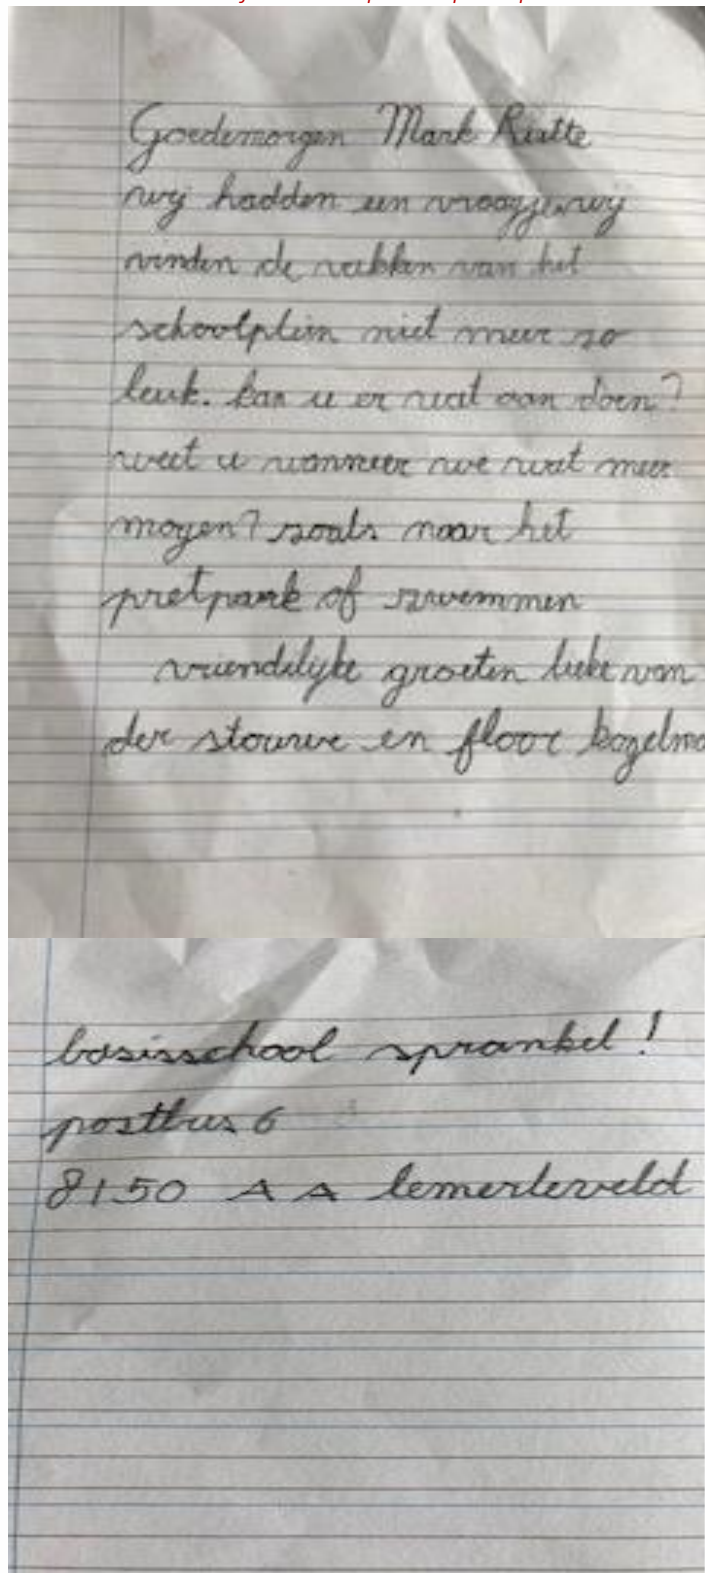 Goedemorgen Mark Rutte
wij hadden een vraagje, wij
vinden de vakken van het
schoolplein niet meer zo
leuk. kan u er wat aan doen?
weet u wanneer we wat meer
mogen? zoals naar het
pretpark of zwemmen
vriendelijke groeten lieke van
der stouwe en floor
basisschool sprankel!
postbus 6
8150 AA lemerleveld